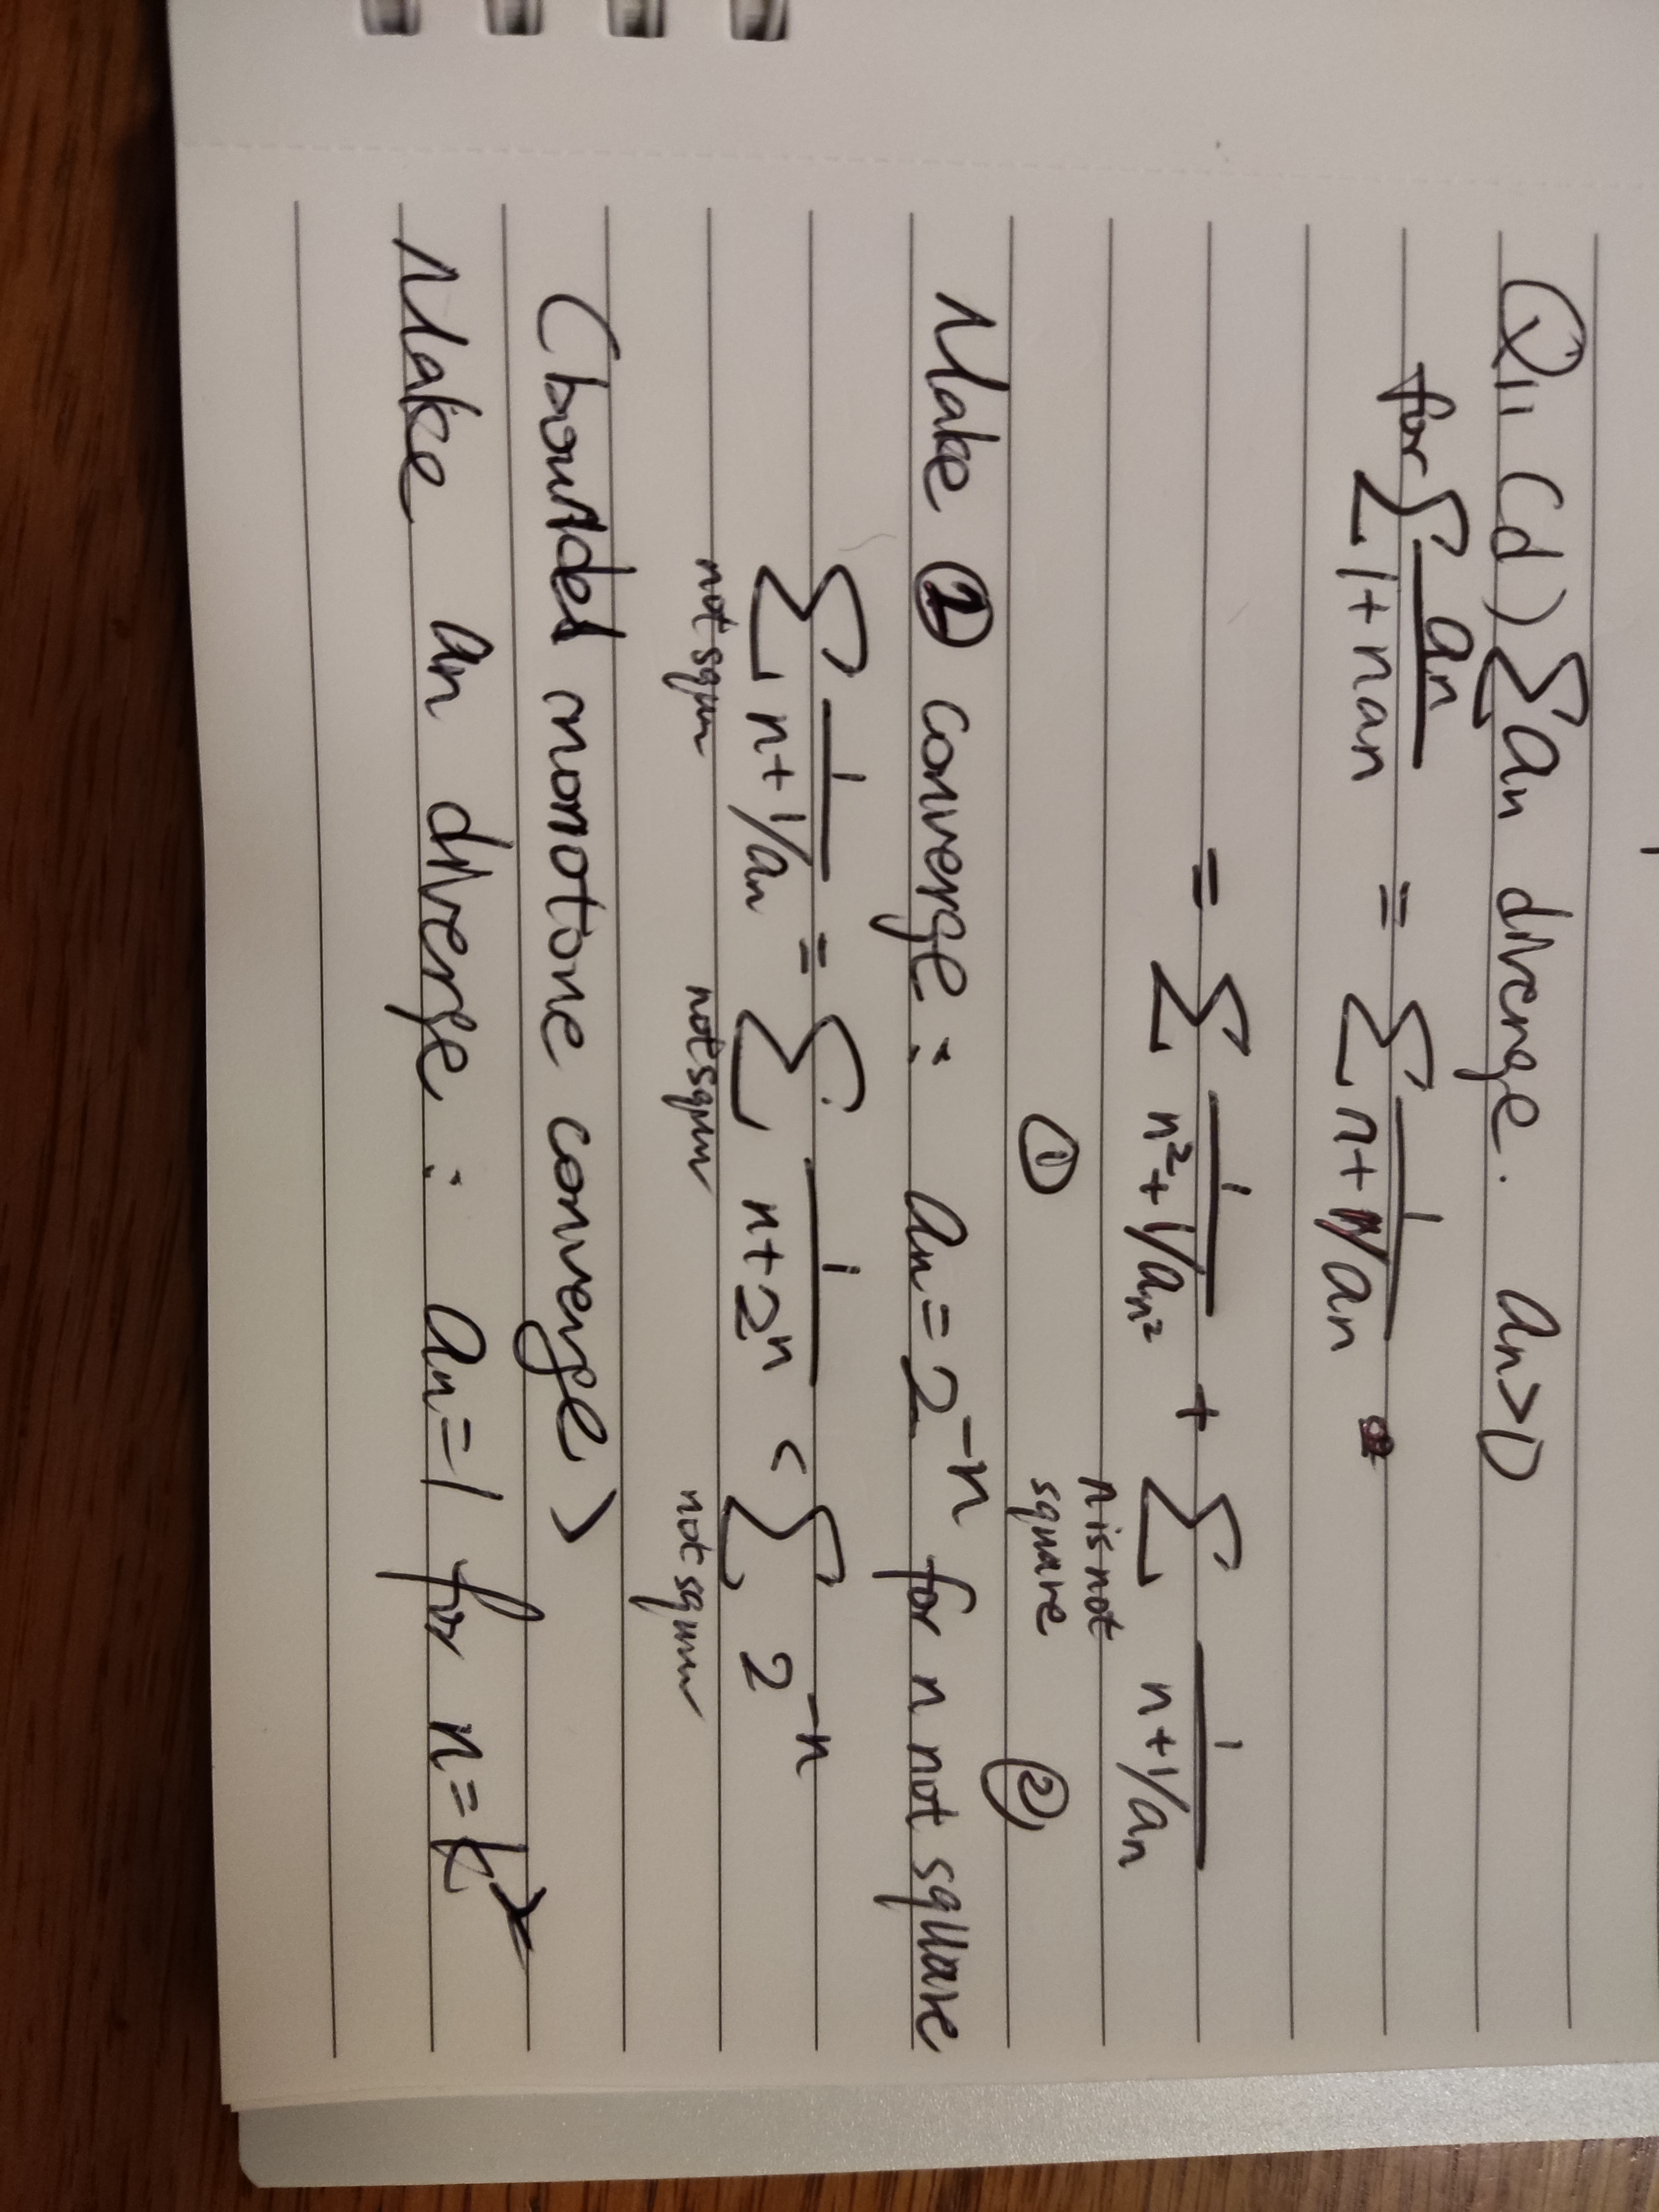 Q11 (d) ∑an diverge. an>0
for ∑ an/1+nan = ∑ 1/n+1/an
= ∑ 1/n²+1/an² + ∑ n is not square 1/n+1/an
① ②
Make ② converge: an=2^-n for n not square
∑ not squre 1/n+1/an = ∑ not squre 1/n+2^n < ∑ not squre 2^-n
(bounded monotone converge)
Make an diverge: an=1 for n=k²